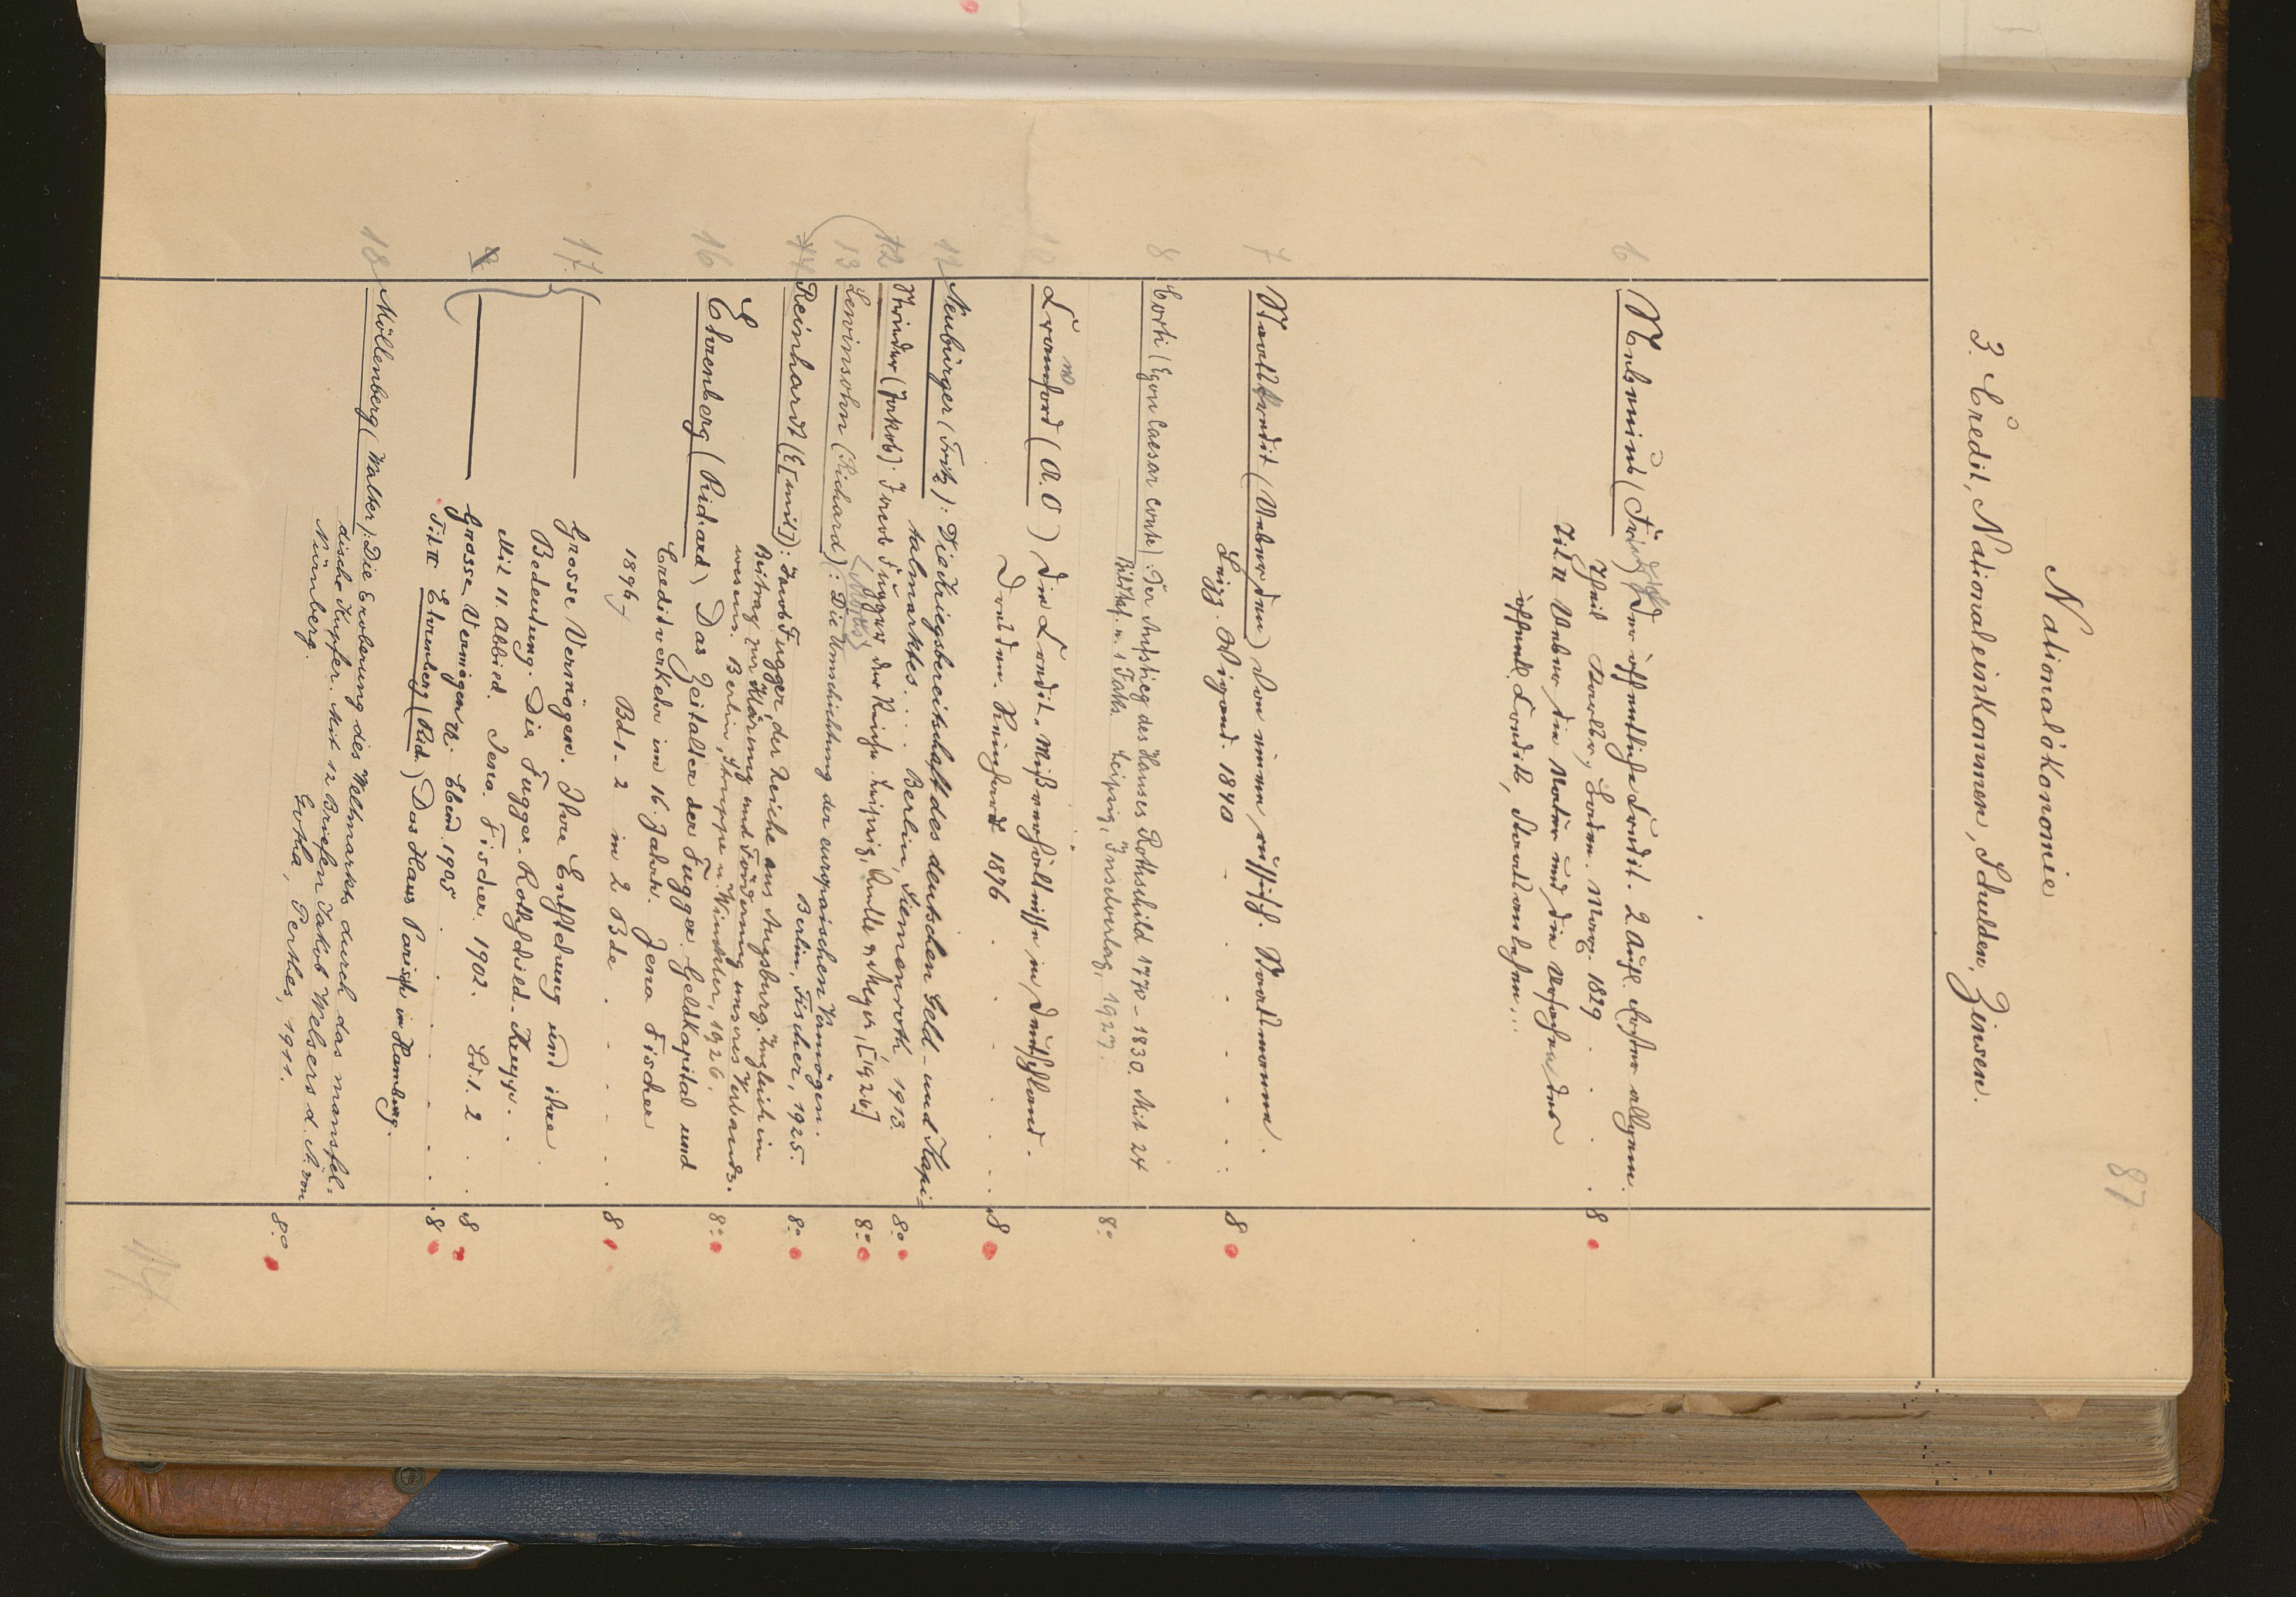 87
Nationalökonomie
3. Credit, Nationaleinkommen, Schulden, Zinsen.
6 Nebenius (Friedrich) Der öffentliche Credit. 2 Aufl. Erster allgem.
Theil Karlsr., Baden. Marx. 1829 . . . 8
Tit. II Ueber die Natur und die Ursachen des
öffentl. Credits, Staatsanlehen...
7 Staatskredit (Ueber den) Von einem russisch. Staatsmanne.
Leipz. Wigand. 1840 - . . . . 8
8 Corti (Egon Caesar conte): Der Aufstieg des Hauses Rothschild 1770-1830. Mit 24
Bildtaf. u. 1 Faks. Leipzig, Inselverlag, 1927. 8°
10 (A. O) Die Credit-Missverhältnisse in Deutschland.
Dresden. 1876 . . . . 8
11 Neubürger (Fritz): Die Kriegsbereitschaft des deutschen Geld- und Kapi-
talmarktes... Berlin, Siemenroth, 1913. 8°
12 Strieder (Jakob): Jacob Fugger, der Reiche. Leipzig, Quelle & Meyer, [1926] 8°
13 Lewinsohn (Richard) <Morus>: Die Umschichtung der europäischen Vermögen.
Berlin, Fischer, 1925. 8°
14 Reinhardt (E[mil]): Jacob Fugger, der Reiche aus Augsburg. Zugleich im
Beitrag zur Klärung und Förderung unseres Verbands-
wesens. Berlin, Struppe u. Winckler, 1926. 8°
16 Ehrenberg (Richard) Das Zeitalter der Fugger. Geldkapital und
Creditverkehr im 16. Jahrh. Jena Fischer
1896 Bd 1-2 in 2 Bde . . . . . 8
17 — Grosse Vermögen. Ihre Entstehung und ihre
Bedeutung. Die Fugger-Rothschild-Krupp. .
Mit 11. Abbild. Jena. Fischer. 1902. Bd. 1. 2 . . 8
— Grosse Vermögen etc. Ebend. 1905 . . . . . 8
Tit II Ehrenberg (Rich.) Das Haus Parish in Hamburg.
18 Möllenberg (Walter): Die Eroberung des Weltmarkts durch das mansfel-
dische Kupfer. Mit 12 Briefen Jakob Welsers d. Ä. von
Nürnberg. Gotha, Perthes, 1911. 8°